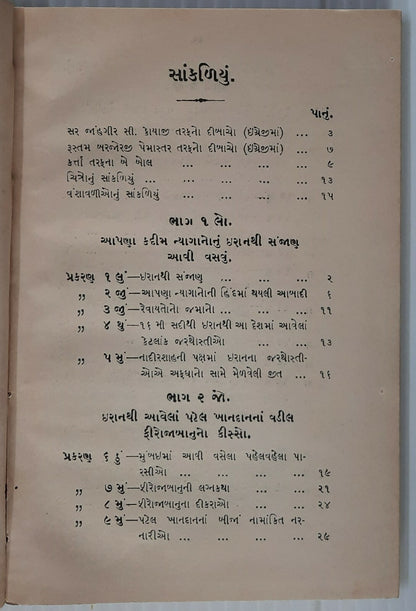 સાંકળિયું.
પાનું.
સર જહાંગીર સી. કોયાજી તરફનો દીબાચો (ઇંગ્રેજીમાં) ... ૩
રૂસ્તમ બરજોરજી પેમાસ્તર તરફનો દીબાચો (ઇંગ્રેજીમાં) ... ૭
કર્ત્તા તરફના બે બોલ ... ... ... ... ૯
ચિત્રોનું સાંકળિયું ... ... ... ... ... ૧૩
વંશાવળીઓનું સાંકળિયું ... ... ... ... ૧૫
ભાગ ૧ લો.
આપણા કદીમ ન્યાગાનોનું ઇરાનથી સંજાણ
આવી વસવું.
પ્રકરણ ૧ લું—ઇરાનથી સંજાણ ... ... ... ૨
,, ૨ જું—આપણા ન્યાગાનોની હિંદમાં થયલી આબાદી ૬
,, ૩ જું—રેવાયતોનો જમાનો. ... ... ... ૧૧
,, ૪ થું—૧૬ મી સદીથી ઇરાનથી આ દેશમાં આવેલાં
કેટલાંક જરથોસ્તીઓ ... ... ૧૩
,, ૫ મું—નાદીરશાહની પક્ષમાં ઇરાનના જરથોસ્તી-
ઓએ અફઘાનો સામે મેળવેલી જીત ... ૧૬
ભાગ ૨ જો.
ઇરાનથી આવેલાં પટેલ ખાનદાનનાં વડીલ
ફીરોજાબાનુનો કીસ્સો.
પ્રકરણ ૬ ઠું—મુંબઇમાં આવી વસેલા પહેલવહેલા પા-
રસીઓ ... ... ... ... ૧૯
,, ૭ મું—ફીરોજાબાનુની લગ્નકથા ... ... ૨૧
,, ૮ મું—ફીરોજાબાનુના દીકરાઓ ... ... ૨૪
,, ૯ મું—પટેલ ખાનદાનનાં બીજાં નામાંકિત નર-
નારીઓ ... ... ... ... ૨૯